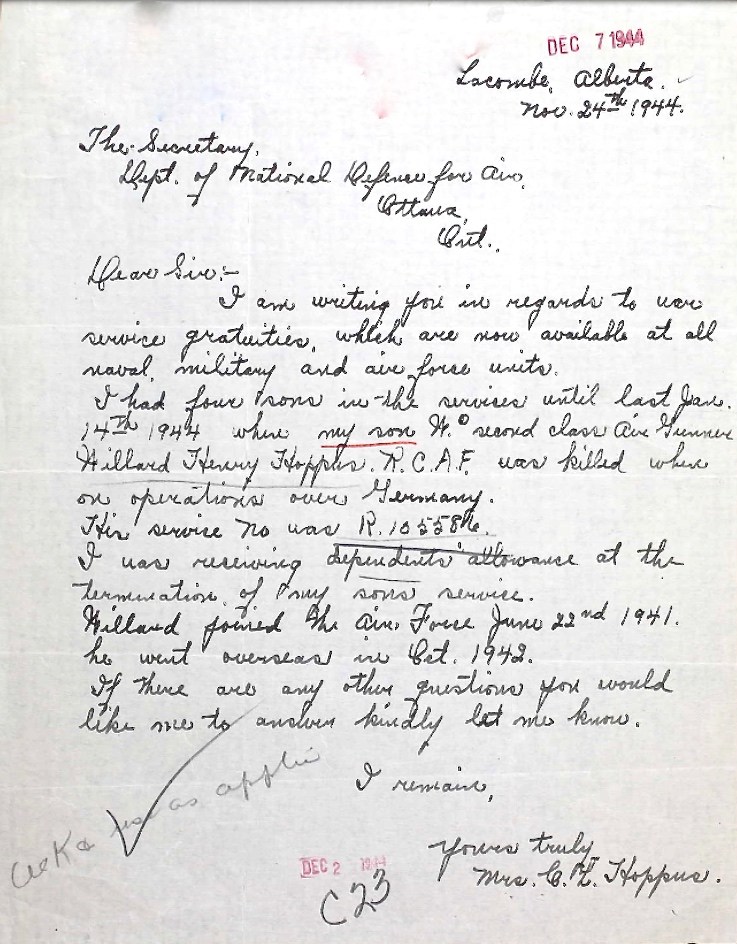 DEC 7 1944
Lacombe, Alberta.
Nov. 24th 1944.
The Secretary,
Dept. of National Defence for Air,
Ottawa,
Ont.
Dear Sir:-
I am writing you in regards to war
service gratuities, which are now available at all
naval, military and air force units.
I had four sons in the services until last Jan.
14th 1944 when my son W.O second class Air Gunner
Willard Henry Hoppus. R.C.A.F. was killed when
on operations over Germany.
His service No was R.105586.
I was receiving dependents' allowance at the
termination of my sons service.
Willard joined the Air Force June 22nd 1941.
he went overseas in Oct. 1942.
If there are any other questions you would
like me to answer kindly let me know.
I remain,
Yours truly
Mrs. C. H. Hoppus.
ack & as applic
DEC 2 1944
C23